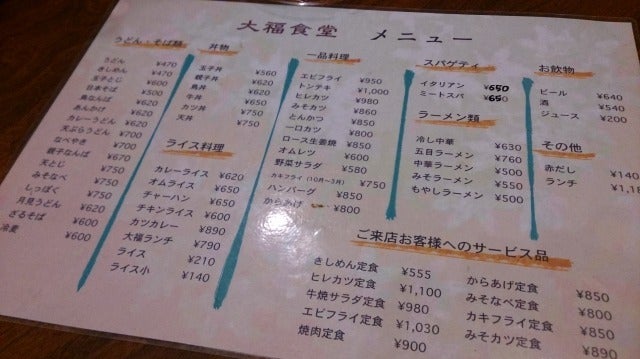 大福食堂 メニュー
うどん・そば類
うどん ¥470
きしめん ¥470
玉子とじ ¥600
日本そば ¥500
鳥なんば ¥620
あんかけ ¥620
カレーうどん ¥620
天ぷらうどん ¥700
なべやき ¥750
親子なんば ¥670
天とじ ¥750
みそなべ ¥750
しっぽく ¥620
月見うどん ¥620
ざるそば ¥600
冷麦 ¥600
丼物
玉子丼 ¥560
親子丼 ¥620
鳥丼 ¥620
牛丼 ¥650
カツ丼 ¥750
天丼 ¥750
ライス料理
カレーライス ¥620
オムライス ¥650
チャーハン ¥650
チキンライス ¥600
カツカレー ¥890
大福ランチ ¥790
ライス ¥210
ライス小 ¥140
一品料理
エビフライ ¥950
トンテキ ¥1,000
ヒレカツ ¥980
みそカツ ¥860
とんかつ ¥800
一口カツ ¥800
ロース生姜焼 ¥800
オムレツ ¥500
野菜サラダ ¥580
カキフライ(10月~3月) ¥750
ハンバーグ ¥750
からあげ ¥800
スパゲティ
イタリアン ¥650
ミートスパ ¥650
ラーメン類
冷し中華 ¥630
五目ラーメン ¥760
中華ラーメン ¥450
みそラーメン ¥500
もやしラーメン ¥550
お飲物
ビール ¥640
酒 ¥540
ジュース ¥200
その他
赤だし ¥140
ランチ
ご来店お客様へのサービス品
きしめん定食 ¥555
ヒレカツ定食 ¥1,100
牛焼サラダ定食 ¥980
エビフライ定食 ¥1,030
焼肉定食 ¥900
からあげ定食 ¥850
みそなべ定食 ¥800
カキフライ定食 ¥850
みそカツ定食 ¥890